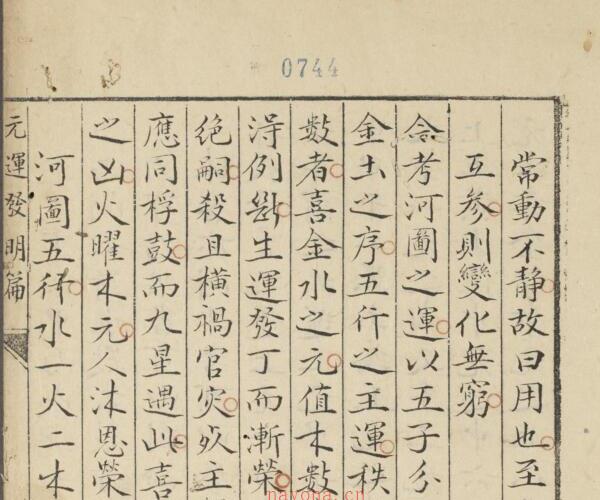 0744
常動不静故曰用也至
互参則變化無窮
合考河圖之運以五子分
金土之序五行之主運秩
数者喜金水之元值木数
淂例斷生運發丁而漸榮
绝嗣殺且横禍官灾必主
應同桴鼓而九星遇此喜
之凶火曜木元人沐恩榮
河圖五行水一火二木
元運發明篇
navona.cn